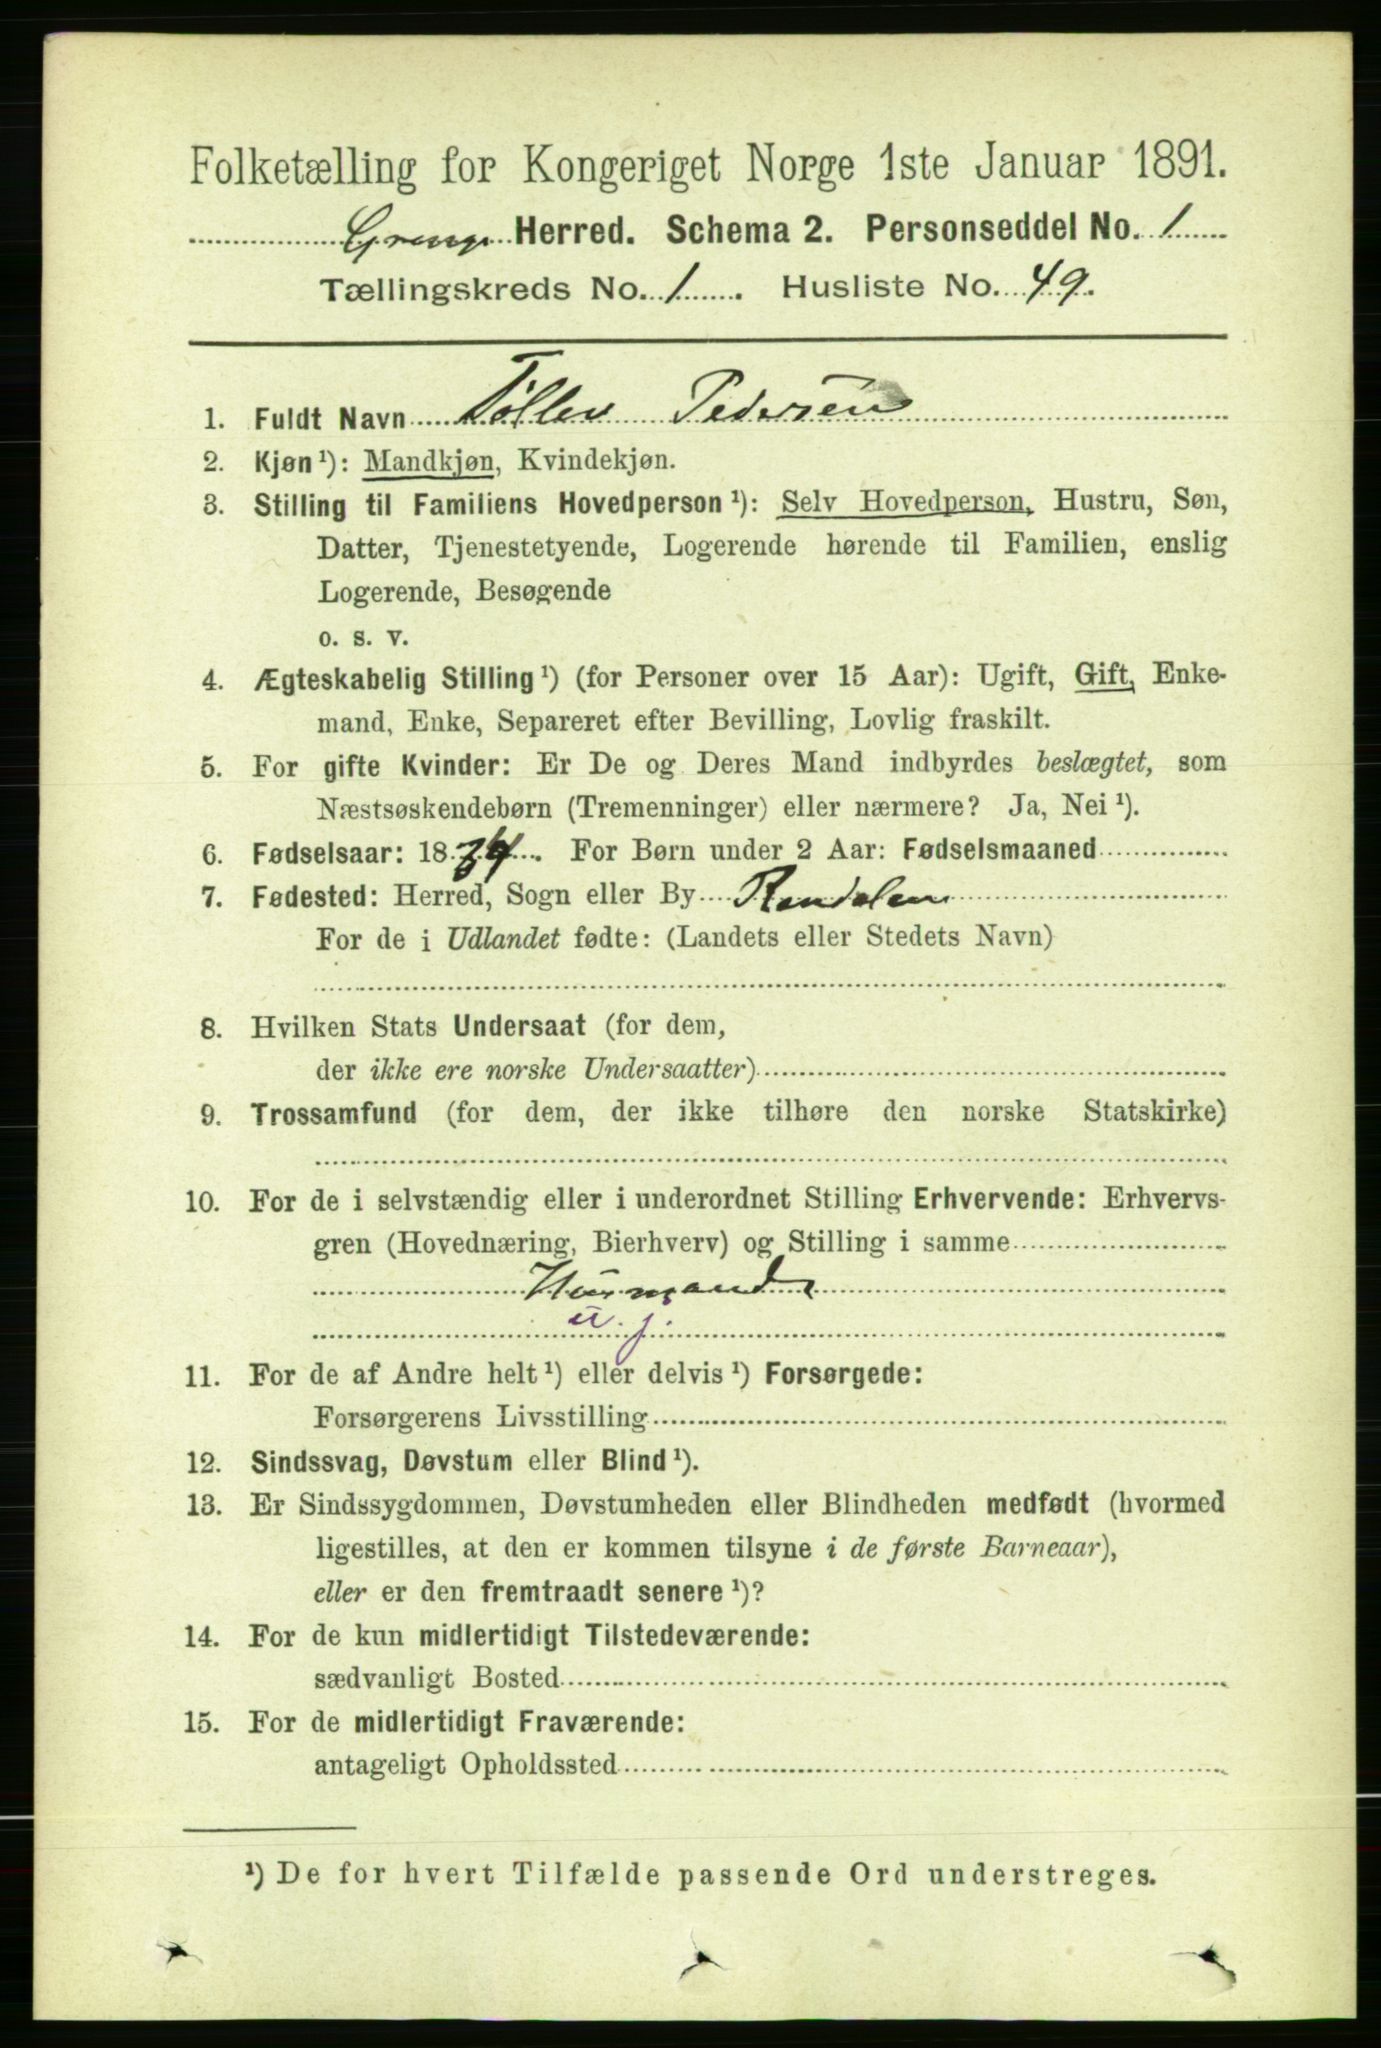 Folketælling for Kongeriget Norge 1ste Januar 1891.
Herred. Schema 2. Personseddel No. 1
Tællingskreds No. 1. Husliste No. 49.
1. Fuldt Navn Tøllev Pedersen
2. Kjøn ¹): Mandkjøn, Kvindekjøn.
3. Stilling til Familiens Hovedperson ¹): Selv Hovedperson, Hustru, Søn,
Datter, Tjenestetyende, Logerende hørende til Familien, enslig
Logerende, Besøgende
o. s. v.
4. Ægteskabelig Stilling ¹) (for Personer over 15 Aar): Ugift, Gift, Enke-
mand, Enke, Separeret efter Bevilling, Lovlig fraskilt.
5. For gifte Kvinder: Er De og Deres Mand indbyrdes beslægtet, som
Næstsøskendebørn (Tremenninger) eller nærmere? Ja, Nei ¹).
6. Fødselsaar: 18 . For Børn under 2 Aar: Fødselsmaaned
7. Fødested: Herred, Sogn eller By Rendalen
For de i Udlandet fødte: (Landets eller Stedets Navn)
8. Hvilken Stats Undersaat (for dem,
der ikke ere norske Undersaatter)
9. Trossamfund (for dem, der ikke tilhøre den norske Statskirke)
10. For de i selvstændig eller i underordnet Stilling Erhvervende: Erhvervs-
gren (Hovednæring, Bierhverv) og Stilling i samme
Husmand
u. j.
11. For de af Andre helt ¹) eller delvis ¹) Forsørgede:
Forsørgerens Livsstilling
12. Sindssvag, Døvstum eller Blind ¹).
13. Er Sindssygdommen, Døvstumheden eller Blindheden medfødt (hvormed
ligestilles, at den er kommen tilsyne i de første Barneaar),
eller er den fremtraadt senere ¹)?
14. For de kun midlertidigt Tilstedeværende:
sædvanligt Bosted
15. For de midlertidigt Fraværende:
antageligt Opholdssted
¹) De for hvert Tilfælde passende Ord understreges.